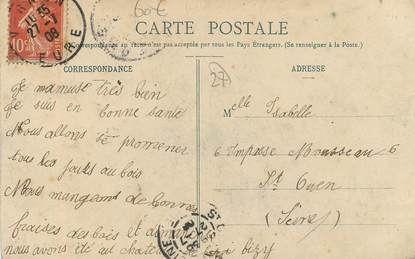 60€
CARTE POSTALE
La Correspondance au recto n'est pas acceptée par tous les Pays Étrangers. (Se renseigner à la Poste.)
CORRESPONDANCE
ADRESSE
27
Je mamuse très bien
Je suis en bonne santé
Nous allons se promener
tous les jours au bois
Nous mangeons de bonnes
fraises des bois et
nous avons été au chateau bizy
Melle Isabelle
6 Impasse Mousseau 6
St Ouen
(Seine)
EURE